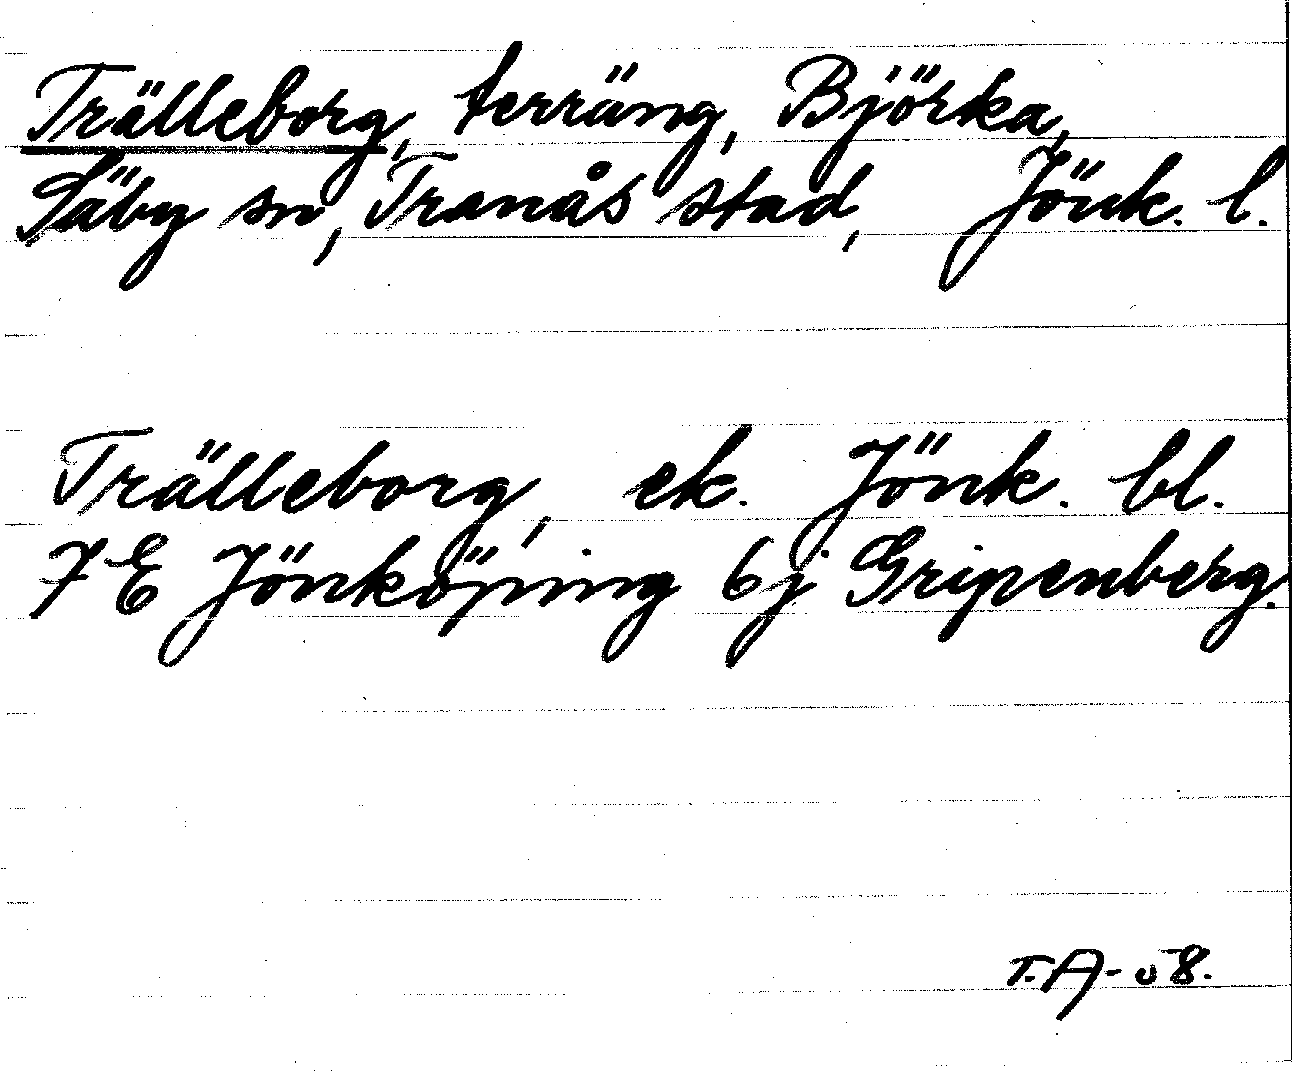 Trälleborg, terräng, Björka,
Säby sn, Tranås stad, Jönk. l.
Trälleborg, ek. Jönk. bl.
7 E Jönköping 6j Gripenberg.
T.A-58.